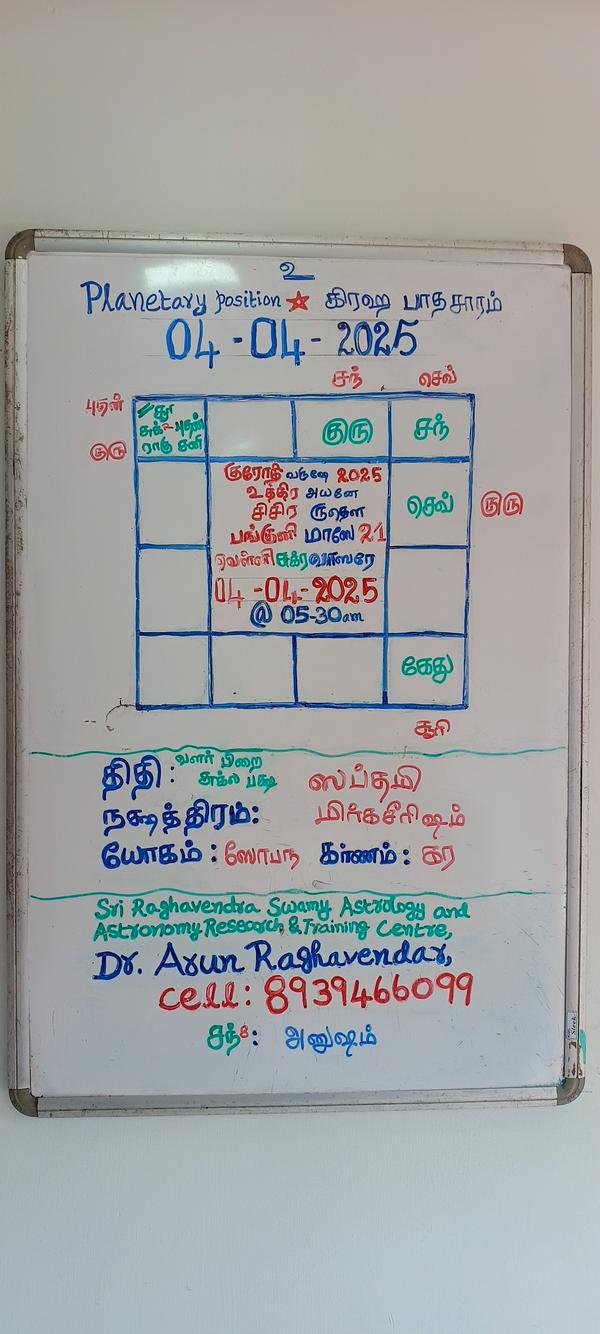 உ
Planetary position ★ கிரஹ பாதசாரம்
04-04-2025
சந் செவ்
புதன்
குரு
சூ
சுக் புதன்
ராகு சனி
குரு
சந்
குரோதி வருஷே 2025
உத்திர அயனே
சிசிர ருதௌ
பங்குனி மாஸே 21
வெள்ளி சுக்ரவாஸரே
04-04-2025
@ 05-30am
செவ் குரு
கேது
சூரி
திதி: வளர் பிறை
சுக்ல பக்ஷ ஸப்தமி
நக்ஷத்திரம்: மிர்கசீரிஷம்
யோகம்: ஸோபந கர்ணம்: கர
Sri Raghavendra Swamy Astrology and
Astronomy Research & Training Centre,
Dr. Arun Raghavendar,
Cell: 8939466099
சந்8: அனுஷம்